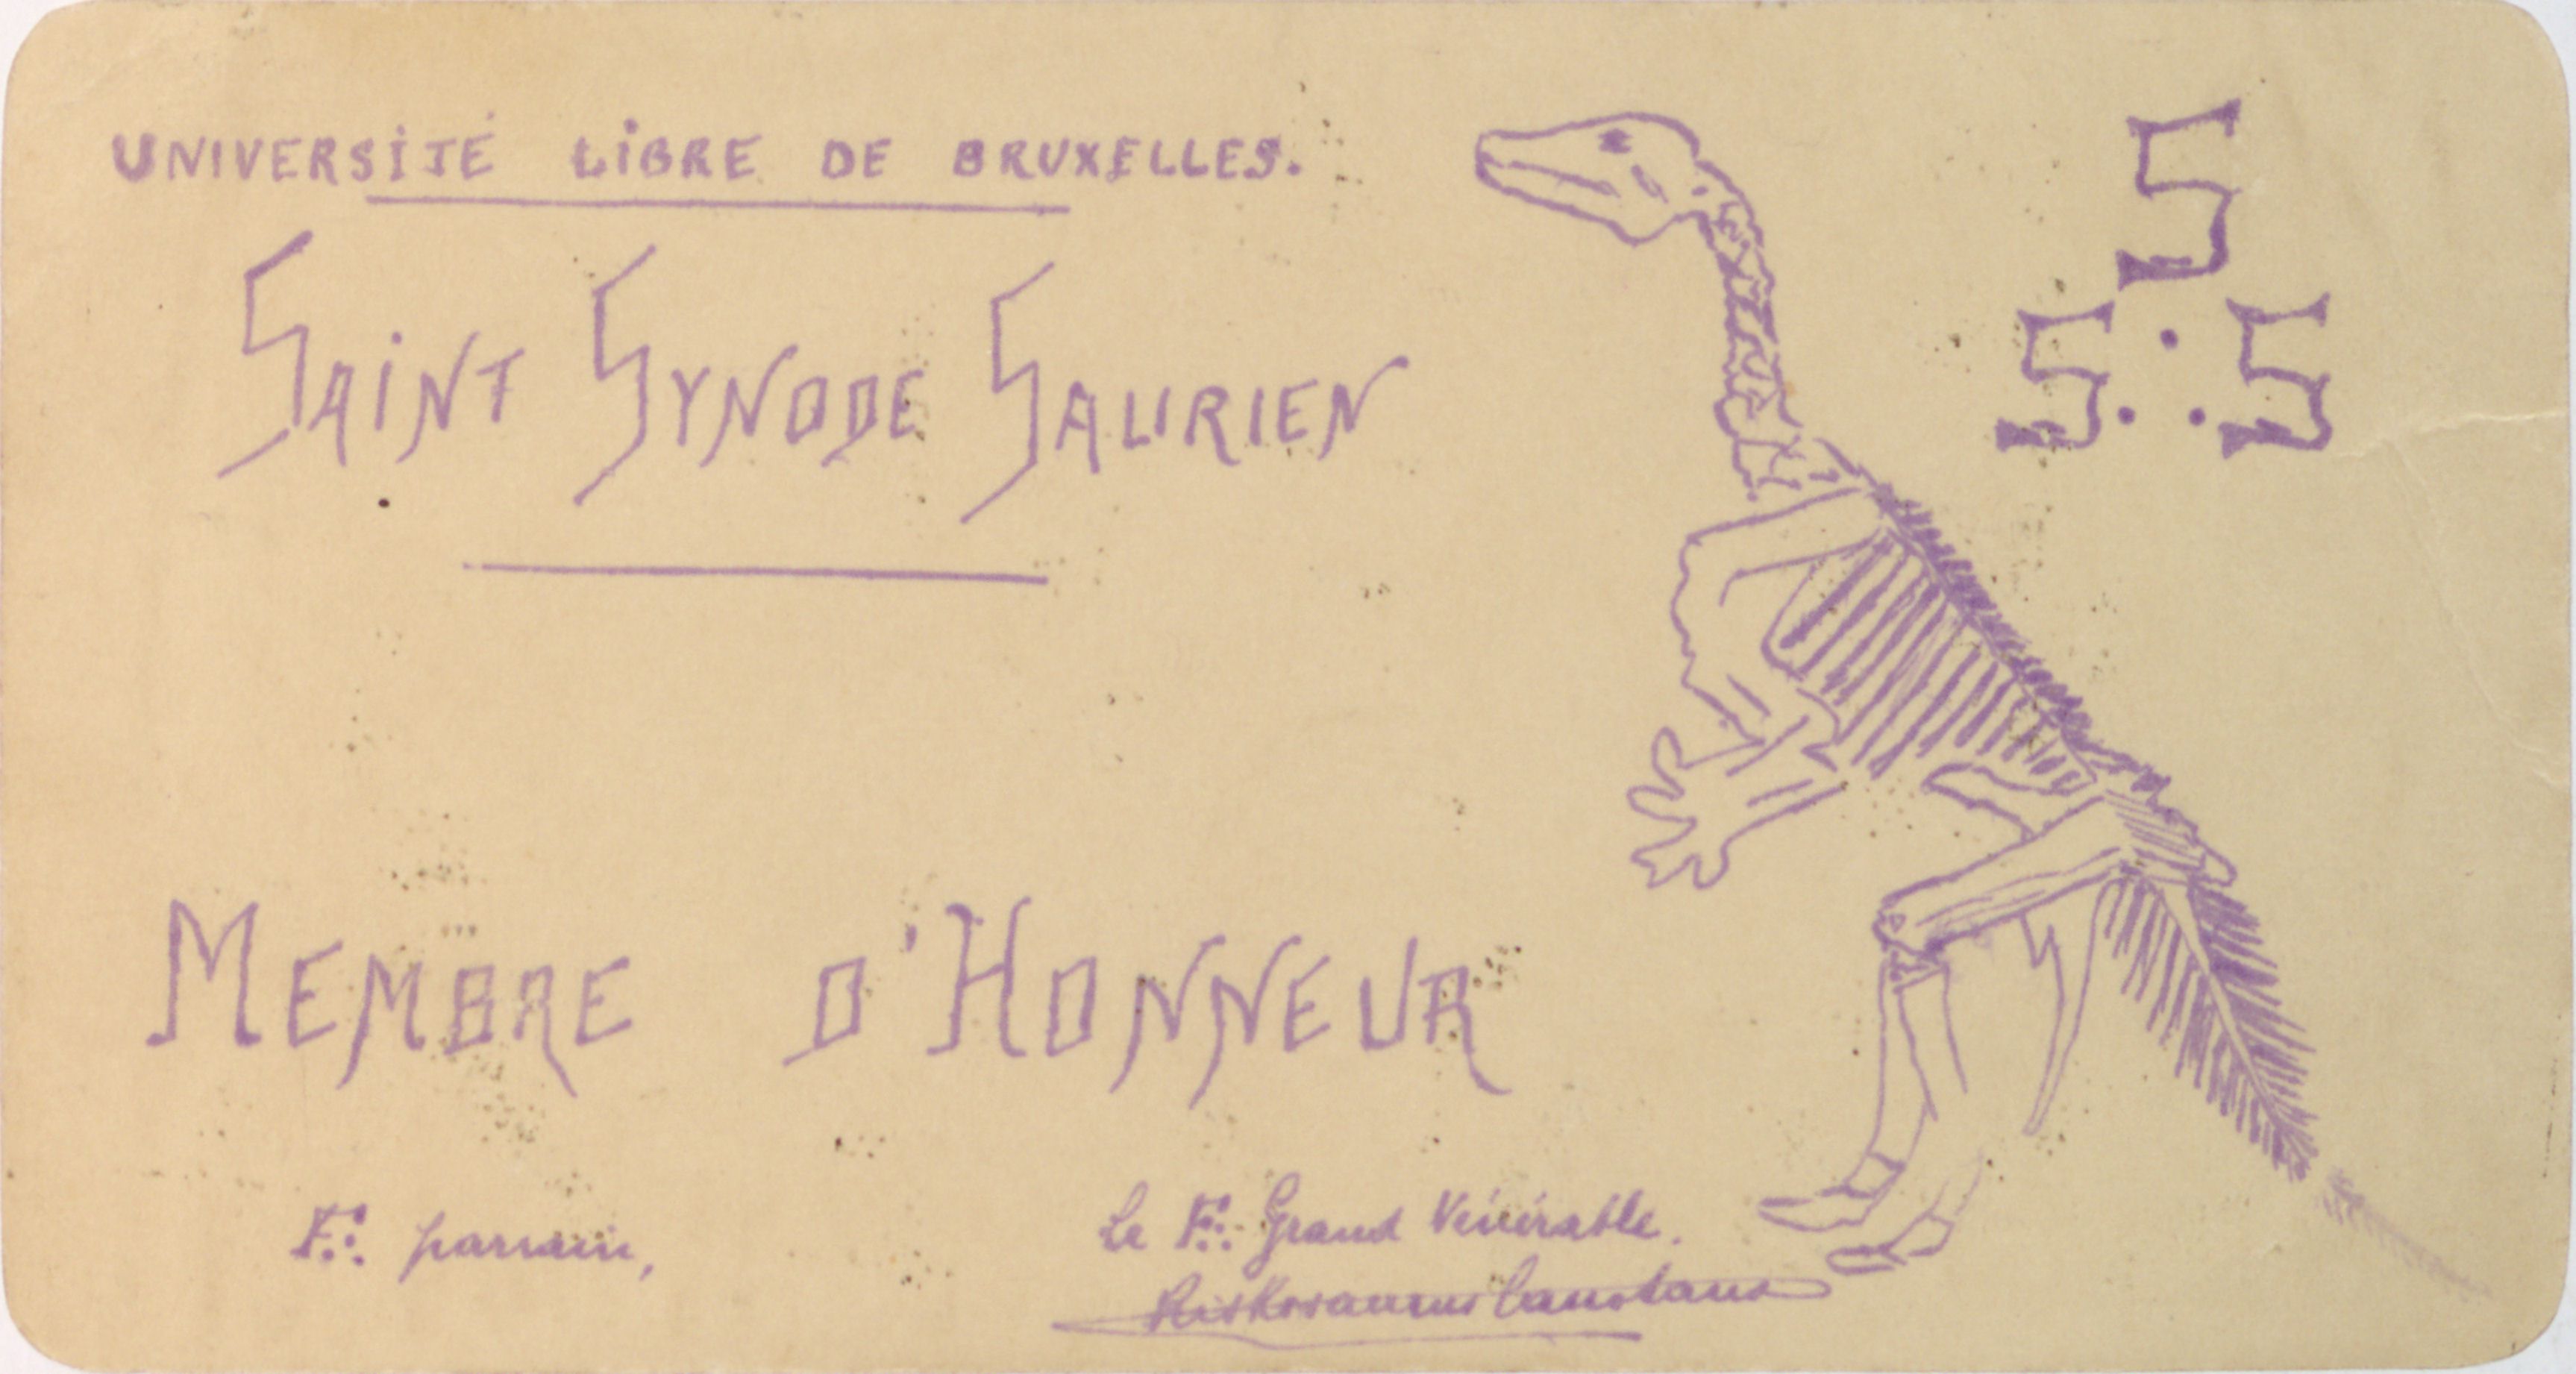 UNIVERSITÉ LIBRE DE BRUXELLES.
SAINT SYNODE SAURIEN
S
S ∴ S
MEMBRE D'HONNEUR
F∴ parrain,
Le F∴ Grand Vénérable.